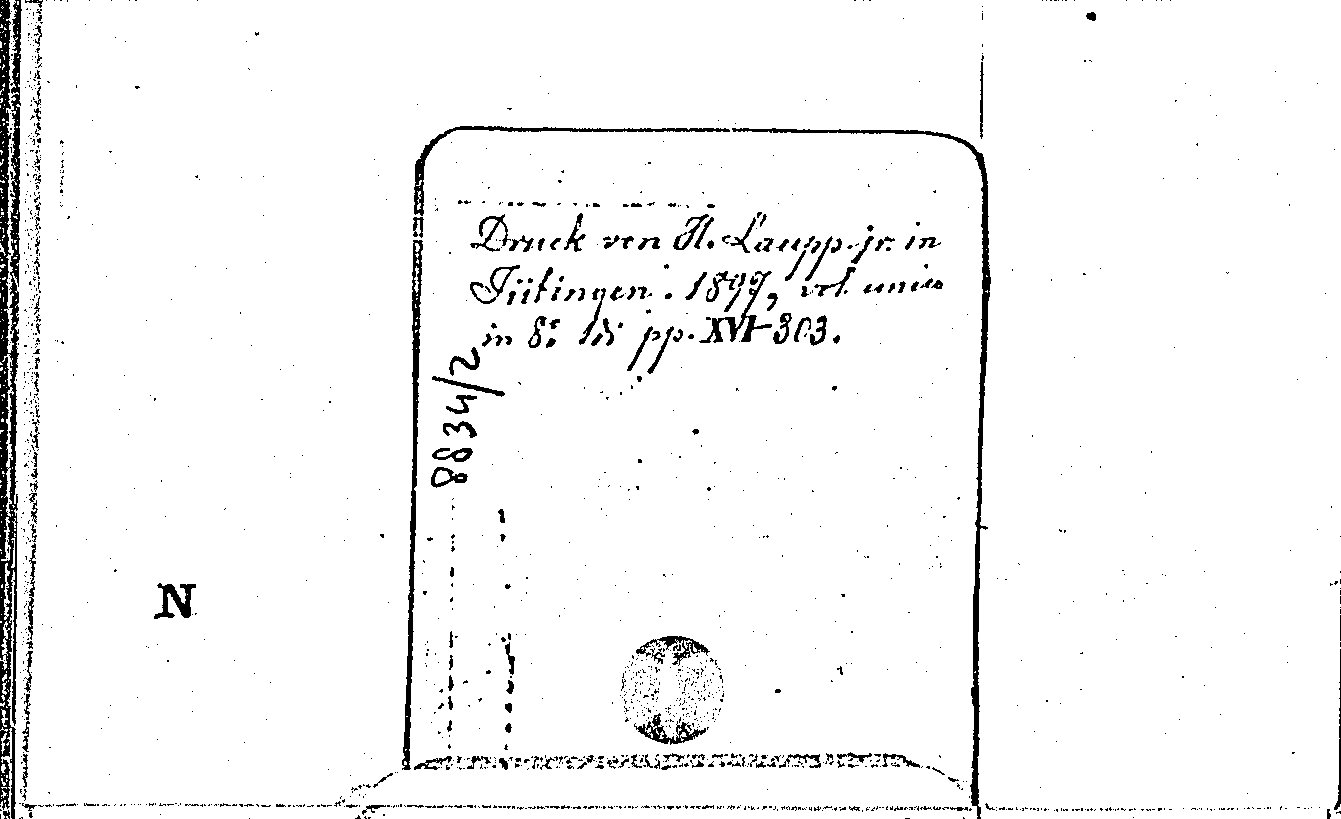 Druck von H. Laupp jr. in
Tübingen. 1897, vol. unico
in 8º di pp. XVI-303.
8834/2
N